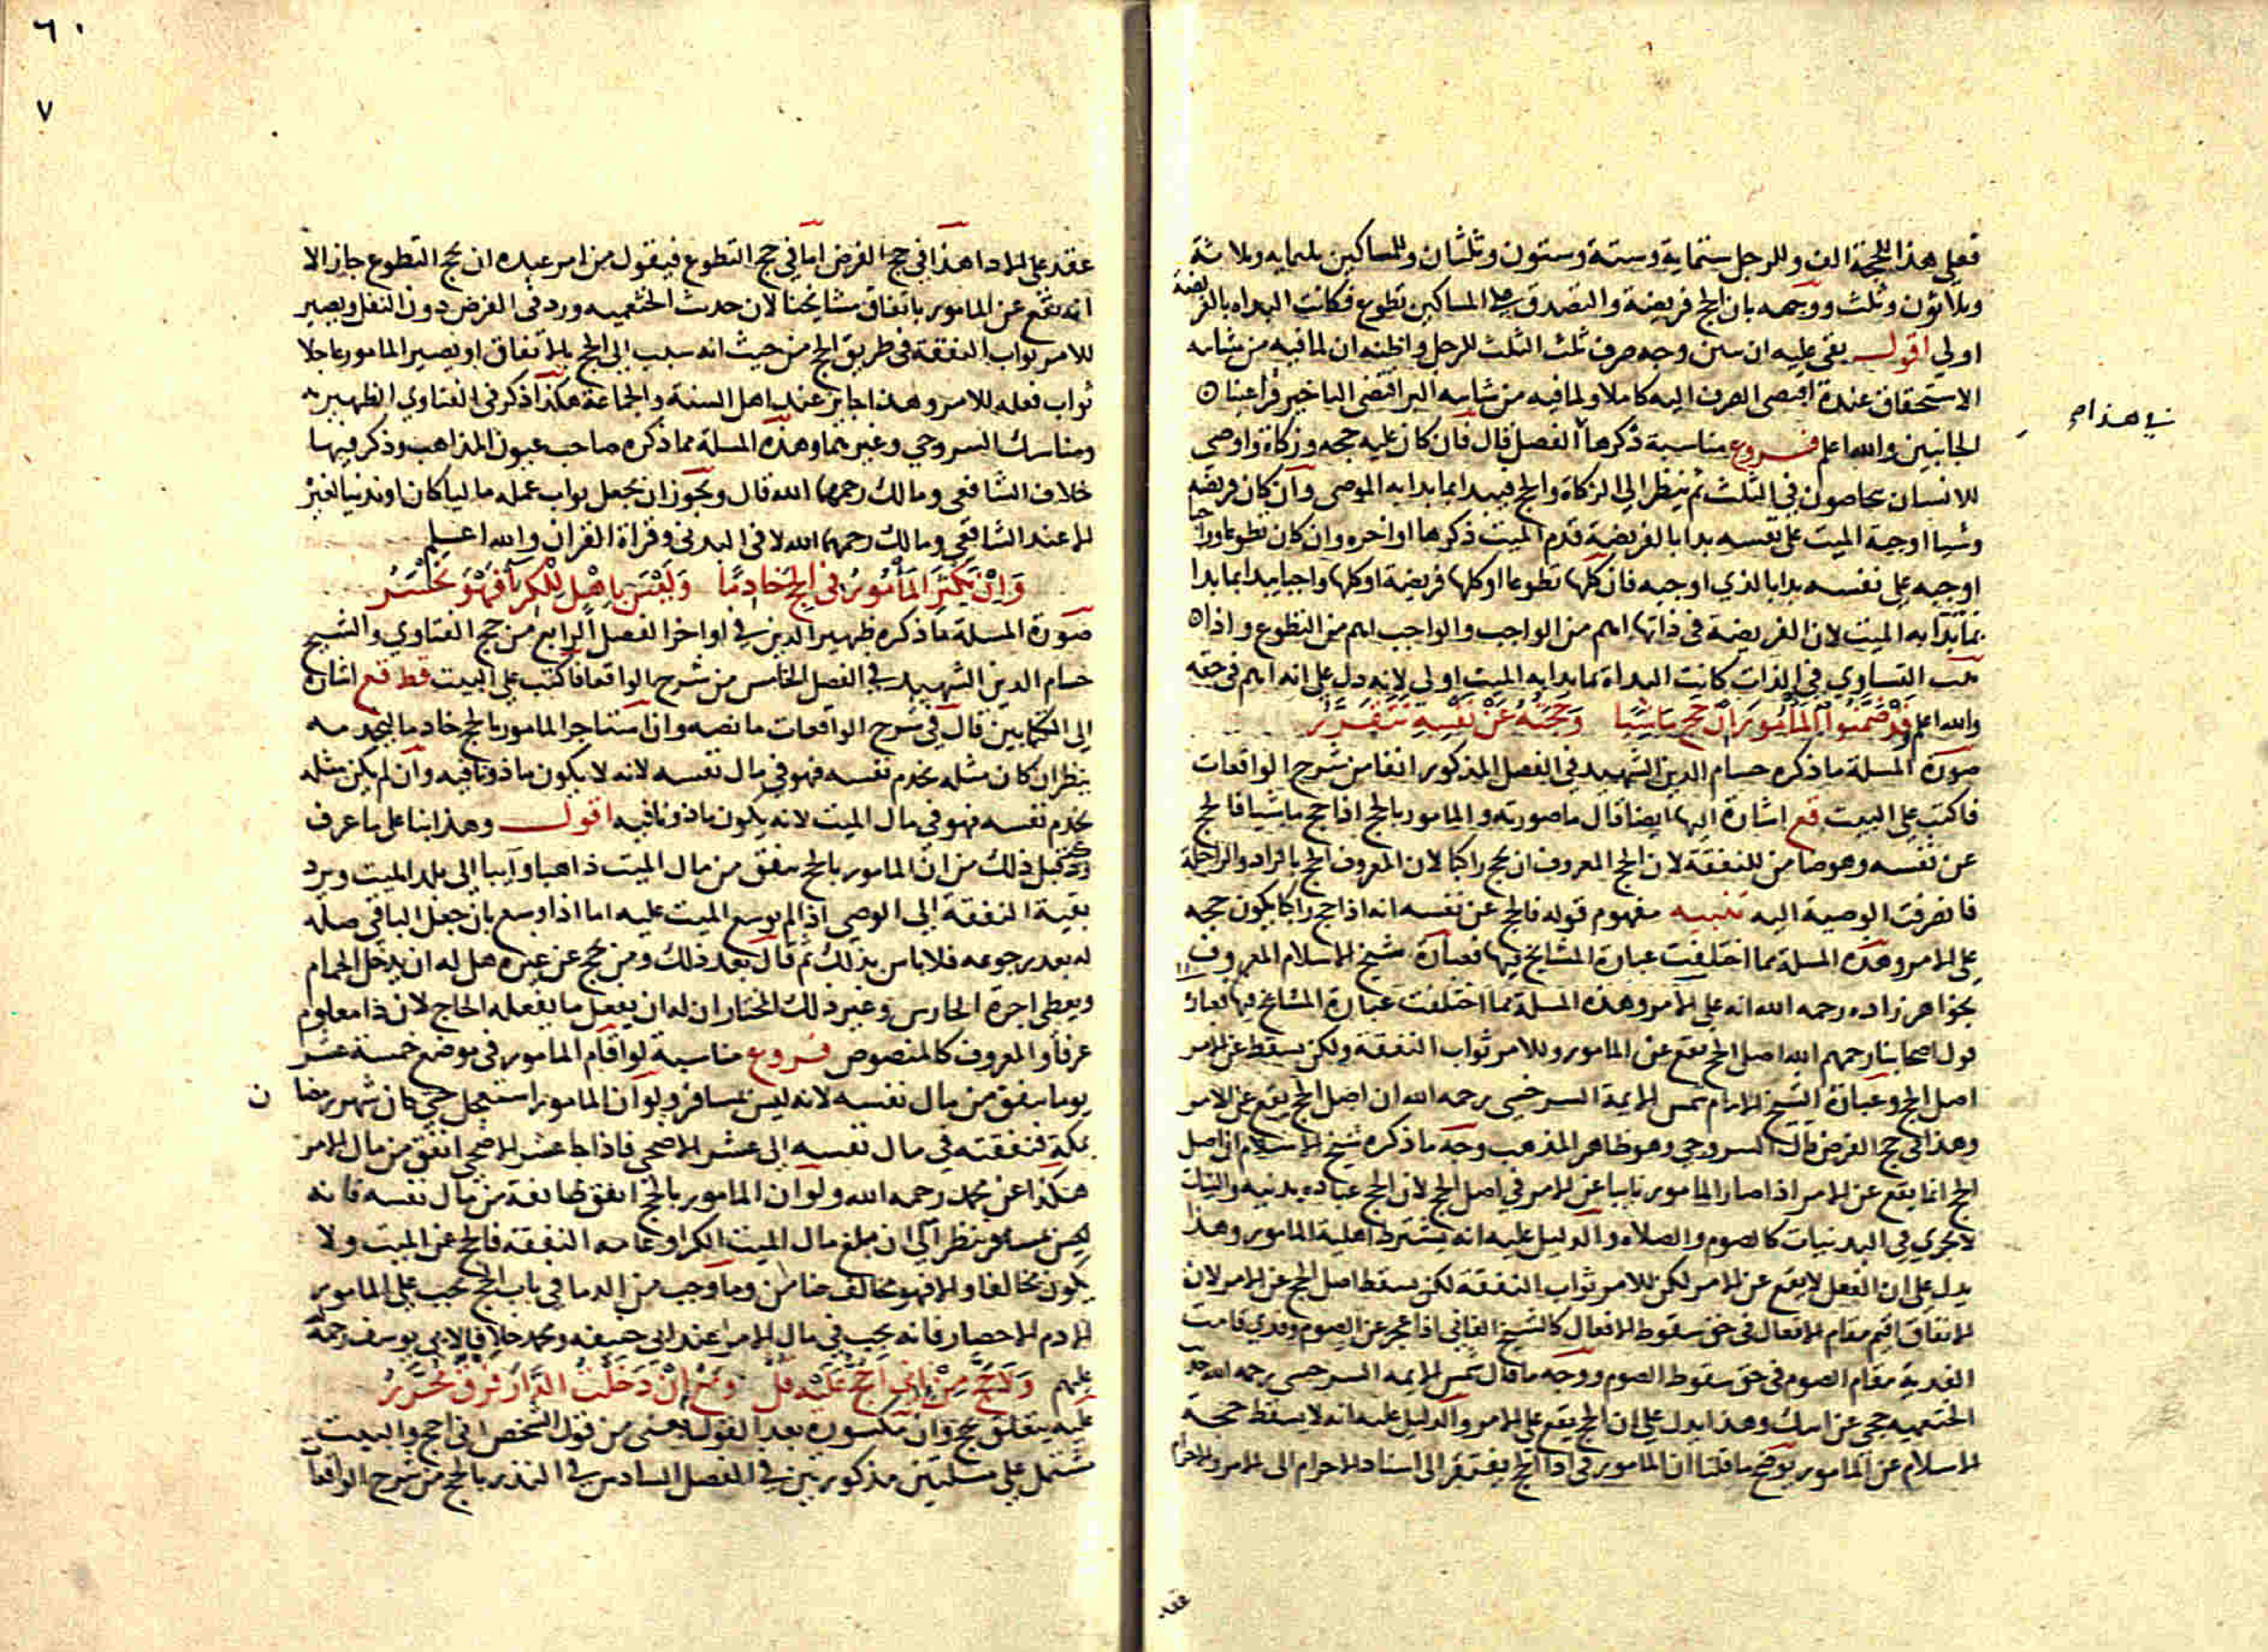 فعلى هذا للحجة الف وللرجل ستماية وستة وستون وثلثان وللمساكين ثلثمايه وثلاثة
وثلاثون وثلث ووجهه بان الحج فريضة والتصدق على المساكين تطوع فكانت البداه بالفريضة
اولي اقول بقي عليه ان يبين وجه صرف ثلث الثلث للرجل واظنه ان لما فيه من شايبه
الاستحقاق عنده اقتضى الصرف اليه كاملا ولما فيه من شايبه البر اقتضى التاخير فراعينا
الجانبين والله اعلم فروع مناسبة ذكرها في هذا الفصل قال فان كان عليه حجه وزكاة واوصى
للانسان يحاصون في الثلث ثم ينظر الى الزكاة والحج فيبدا بما بدا به الموصى وان كان فريضه
وشيا اوجبه الميت على نفسه بدا بالفريضة قدم الميت ذكرها او اخره وان كان تطوعا وواجبا
اوجبه على نفسه بدا بالذي اوجبه فان كلها تطوعا او كلها فريضة او كلها واجبا يبدا بما بدا
بما بدا به الميت لان الفريضة في ذاتها اهم من الواجب والواجب اهم من التطوع واذا
ثبت التساوي في الذات كانت البداة بما بدا به الميت اولي لانه دل على انه اهم في حقه
والله اعلم وقد ضمنوا المأمور ان حج ماشيا وحجته عن نفسه تتقرر
صورة المسلة ما ذكره حسام الدين الشهيد في الفصل المذكور انفا من شرح الواقعات
فاكتب على البيت قع اشارة اليها ايضا قال ما صورته والمامور بالحج اذا حج ماشيا فالحج
عن نفسه وهو ضامن للنفقة لان الحج المعروف ان يحج راكبا لان المعروف الحج بالزاد والراحلة
فانصرفت الوصية اليه تنبيه مفهوم قوله فالحج عن نفسه انه اذا حج راكبا يكون حجه
على الامر وهذه المسلة مما اختلفت عبارة المشايخ فيها فعبارة شيخ الاسلام المعروف
بخواهر زاده رحمه الله انه على الامر وهذه المسلة مما اختلفت عبارة المشايخ فيها فعبارة
قول اصحابنا رحمهم الله اصل الحج يقع عن المامور وللامر ثواب النفقة ولكن يسقط عن الامر
اصل الحج وعبارة الشيخ الامام شمس الايمة السرخسي رحمه الله ان اصل الحج يقع عن الامر
وهذا في حج الفرض قال السروجي وهو ظاهر المذهب وجه ما ذكره شيخ الاسلام ان اصل
الحج انما يقع عن الامر اذا صار المامور نايبا عن الامر في اصل الحج لان الحج عباده بدنيه والنيابة
لا تجري في البدنيات كالصوم والصلاه والدليل عليه انه يشترط اهلية المامور وهذا
يدل على ان الفعل لا يقع عن الامر لكن للامر ثواب النفقة لكن يسقط اصل الحج عن الامر لان
الانفاق اقيم مقام الافعال في حق سقوط الافعال كالشيخ الفاني اذا عجز عن الصوم وفدي قامت
الفدية مقام الصوم في حق سقوط الصوم ووجه ما قال شمس الايمه السرخسي رحمه الله
الخثعميه حجي عن ابيك وهذا يدل على ان الحج يقع على الامر والدليل عليه انه لا يسقط حجة
الاسلام عن المامور يوضح ما قلنا ان المامور في ادا الحج يفتقر الى اسناد الاحرام الى الامر والاحرام
في هذا مح
عقد
٦٠
٧
عقد على الادا هذا في حج الفرض اما في حج التطوع فيقول من امر غيره ان يحج التطوع جاز الا
انه يقع عن المامور باتفاق مشايخنا لان حدث الخثعميه ورد في الفرض دون النفل ويصير
للامر ثواب النفقة في طريق الحج من حيث انه سبب الى الحج بالانفاق او يصير المامور جاعلا
ثواب فعله للامر وهذا جايز عند اهل السنة والجماعة هكذا ذكر في الفتاوي الظهيريه
ومناسك السروجي وغيرهما وهذه المسلة مما ذكره صاحب عيون المذاهب وذكر فيها
خلاف الشافعي ومالك رحمهما الله قال ويجوز ان يجعل ثواب عمله ماليا كان او بدنيا لغيره
الا عند الشافعي ومالك رحمهما الله لا في البدني وقراة القران والله اعلم
وَان يكتر المأمور في الحج خادمًا وليس باهل للكرا فهو يخسر
صورة المسلة ما ذكره ظهير الدين في اواخر الفصل الرابع من حج الفتاوي والشيخ
حسام الدين الشهيد في الفصل الخامس من شرح الواقعا فاكتب على البيت قط قع اشارة
الى الكتابين قال في شرح الواقعات ما نصه وان استاجر المامور بالحج خادما ليخدمه
ينظر ان كان مثله يخدم نفسه فهو في مال نفسه لانه لا يكون ماذونا فيه وان لم يكن مثله
يخدم نفسه فهو في مال الميت لانه يكون ماذونا فيه اقول وهذا بنا على ما عرف
وذكر قبل ذلك من ان المامور بالحج ينفق من مال الميت ذاهبا وآيبا الى بلد الميت ويرد
بقية النفقة الى الوصي اذا لم يوسع الميت عليه اما اذا وسع بان جعل الباقي صله
له بعد رجوعه فلا باس بذلك ثم قال بعد ذلك ومن حج عن غيره هل له ان يدخل الحمام
ويعطى اجرة الحارس وغير ذلك المختار ان له ان يفعل ما يفعله الحاج لان ذا معلوم
عرفا والمعروف كالمنصوص فروع مناسبة لو اقام المامور في موضع خمسة عشر
يوما ينفق من مال نفسه لانه ليس بمسافر ولو ان المامور استعجل حتى كان شهر رمضا ن
بمكة فنفقته في مال نفسه الى عشر الاضحى فاذا جا عشر الاضحى انفق من مال الامر
هكذا عن محمد رحمه الله ولو ان المامور بالحج انفق طايفة من مال نفسه فانه
ليس بمسافر ينظر الى ان مبلغ مال الميت الكرا وعامة النفقة فالحج عن الميت ولا
يكون مخالفا والا فهو مخالف ضامن وما وجب من الدما في باب الحج يجب على المامور
الا دم الاحصار فانه يجب في مال الامر عند ابي حنيفه ومحمد خلافا لابي يوسف رحمة
عليهم ولا حج من اني احج عليه قل ومع ان دخلت الدار فرق محرر
عليه يتعلق بحج وان مكسوره بعد القول لا شي من قول الشخص اني احج والبيت
مشتمل على مسلتين مذكورتين في الفصل السادس في النذر بالحج من شرح الواقعات